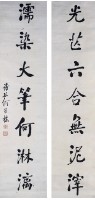 光芒六合無泥滓
濡染大筆何淋漓